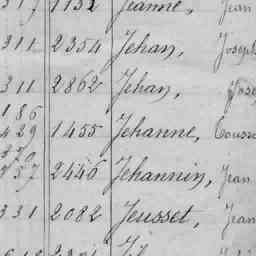 317 1132 Jeanne, Jean
311 2354 Jehan, Joseph
311 2862 Jehan,
186
429 1455 Jehanne,
2446 Jehannin, Jean
331 2082 Jeusset, Jean